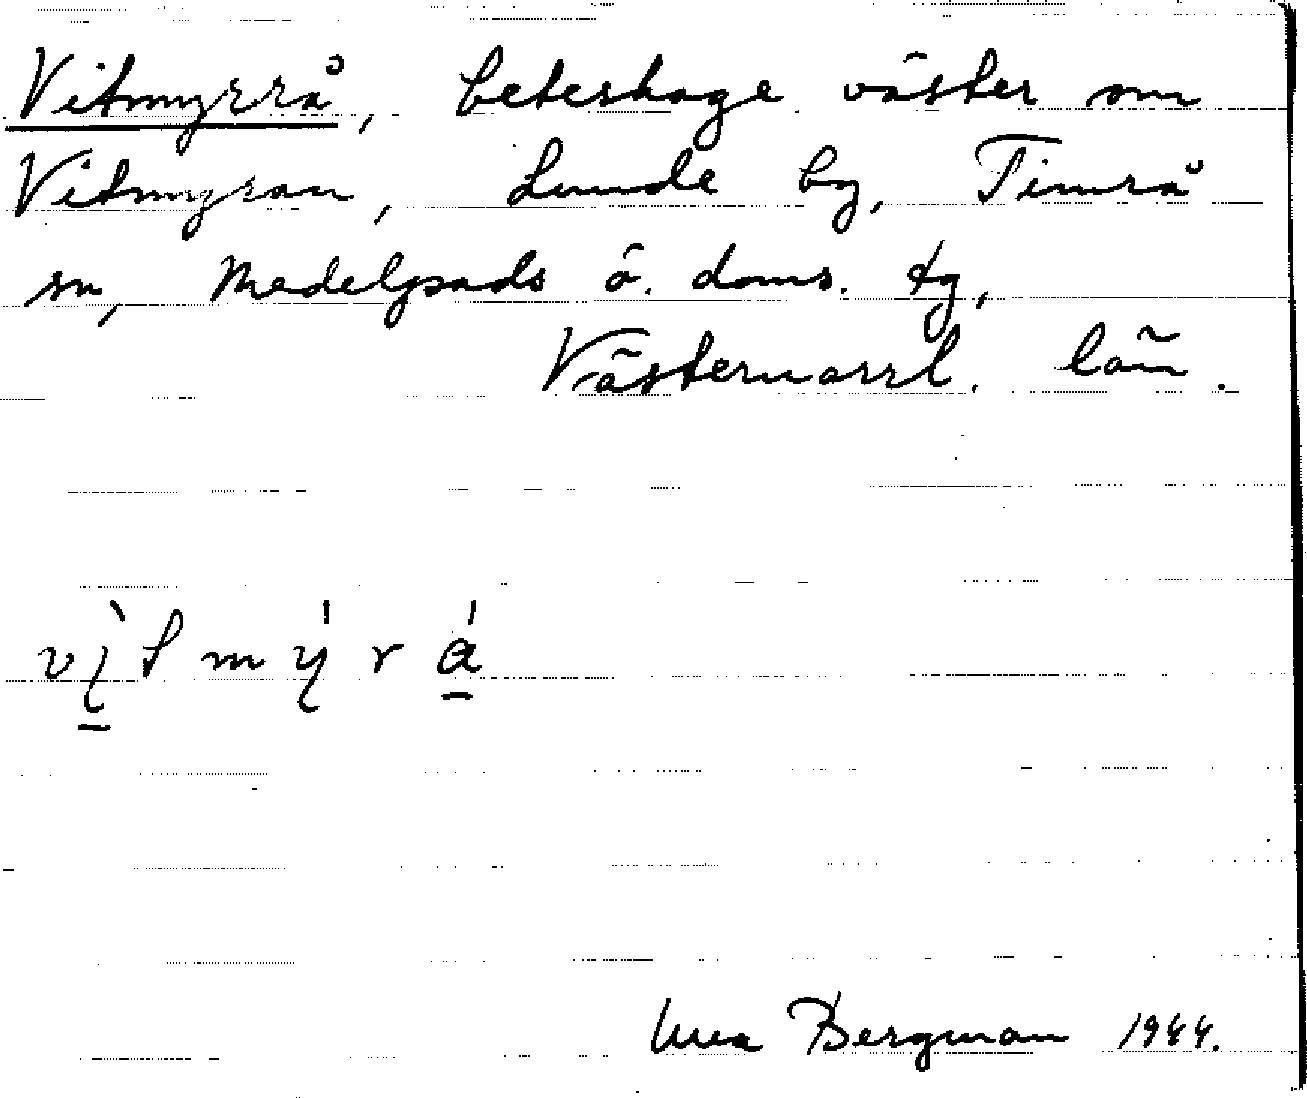 Vitmyrrå, beteshage väster om
Vitmyran, Lunde by, Timrå
sn, Medelpads ö. doms. tg,
Västernorrl. län.
Bergman 1944.